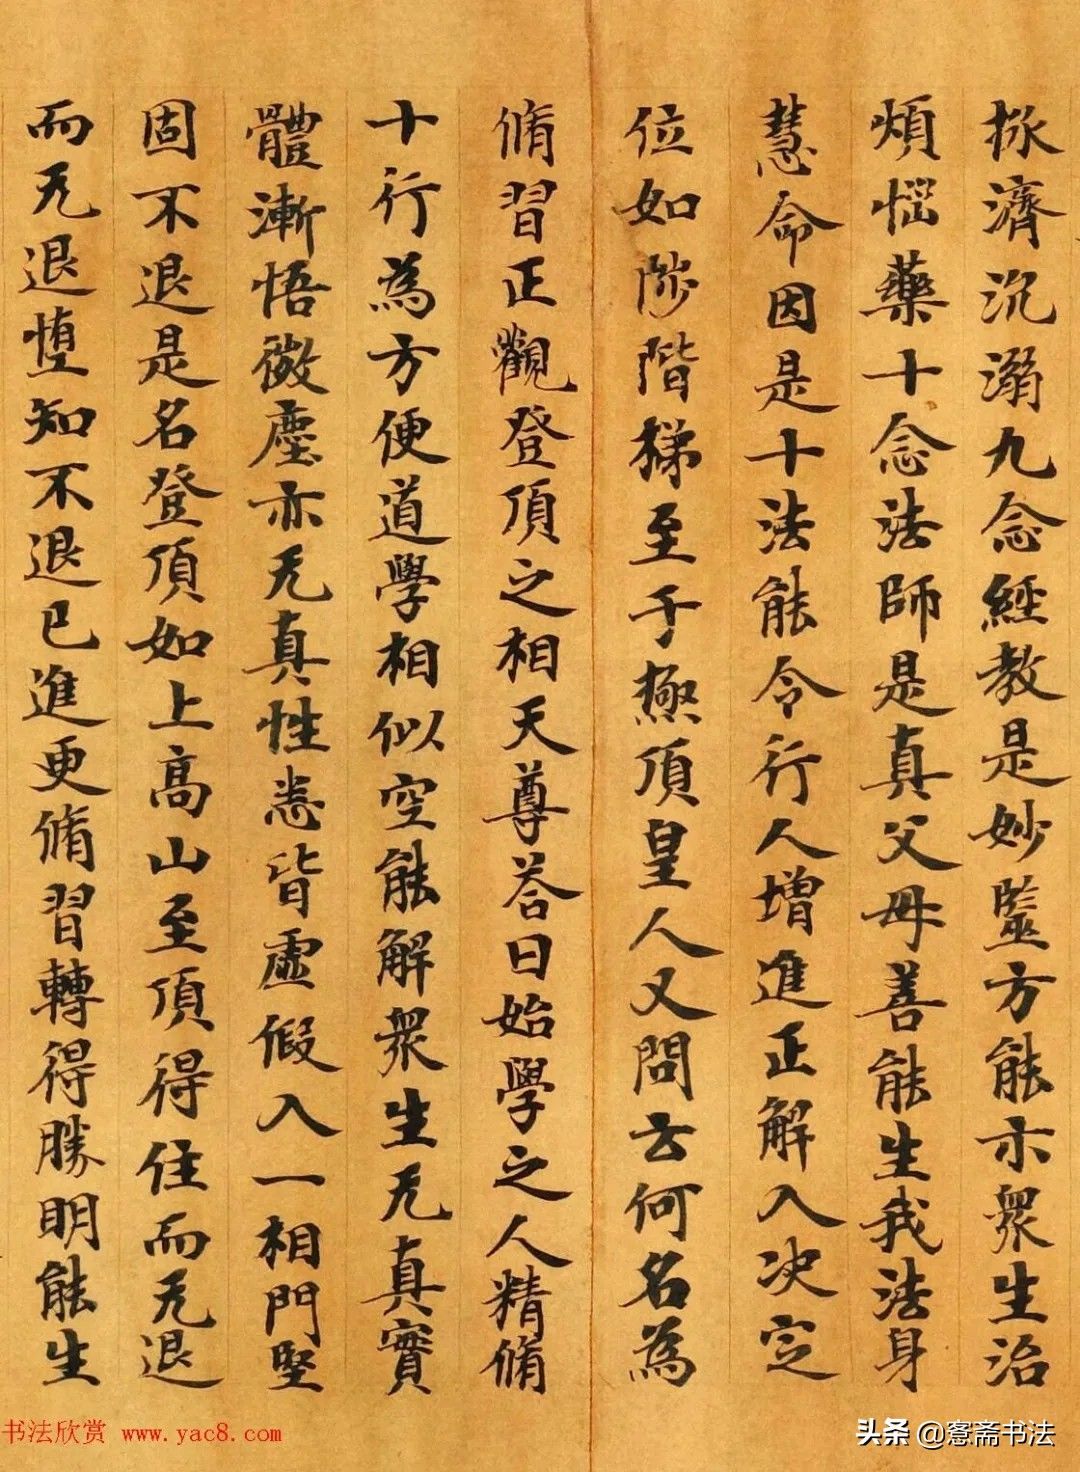 拯濟沉溺九念經教是妙毉方能示衆生治
煩惱藥十念法師是真父母善能生我法身
慧命因是十法能令行人增進正解入决定
位如陟階梯至于極頂皇人又問云何名為
脩習正觀登頂之相天尊荅曰始學之人精脩
十行為方便道學相似空能解衆生无真實
體漸悟微塵亦无真性悉皆虛假入一相門堅
固不退是名登頂如上高山至頂得住而无退
而无退墮知不退已進更脩習轉得勝明能生
书法欣赏 www.yac8.com
头条 @愙斋书法